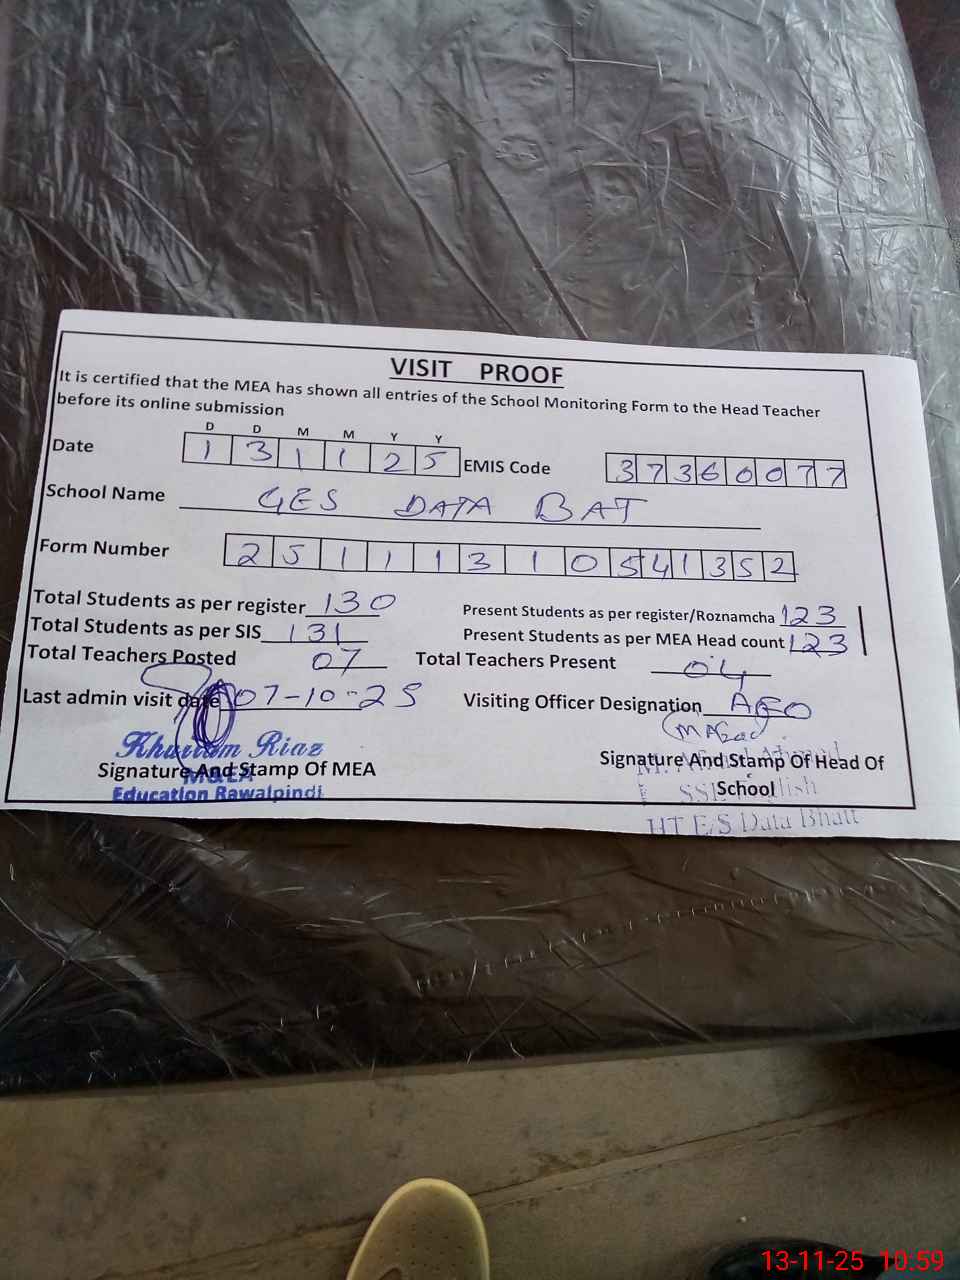 VISIT PROOF
It is certified that the MEA has shown all entries of the School Monitoring Form to the Head Teacher
before its online submission
D D M M Y Y
Date 1 3 1 1 2 5 EMIS Code 3 7 3 6 0 0 7 7
School Name GES DATA BAT
Form Number 2 5 1 1 1 3 1 0 5 4 1 3 5 2
Total Students as per register 130 Present Students as per register/Roznamcha 123
Total Students as per SIS 131 Present Students as per MEA Head count 123
Total Teachers Posted 07 Total Teachers Present 04
Last admin visit date 07-10-25 Visiting Officer Designation AEO
Khurram Riaz
Signature And Stamp Of MEA Signature And Stamp Of Head Of
M&EA School
Education Rawalpindi
SSE English
HT E/S Data Bhatt
13-11-25 10:59